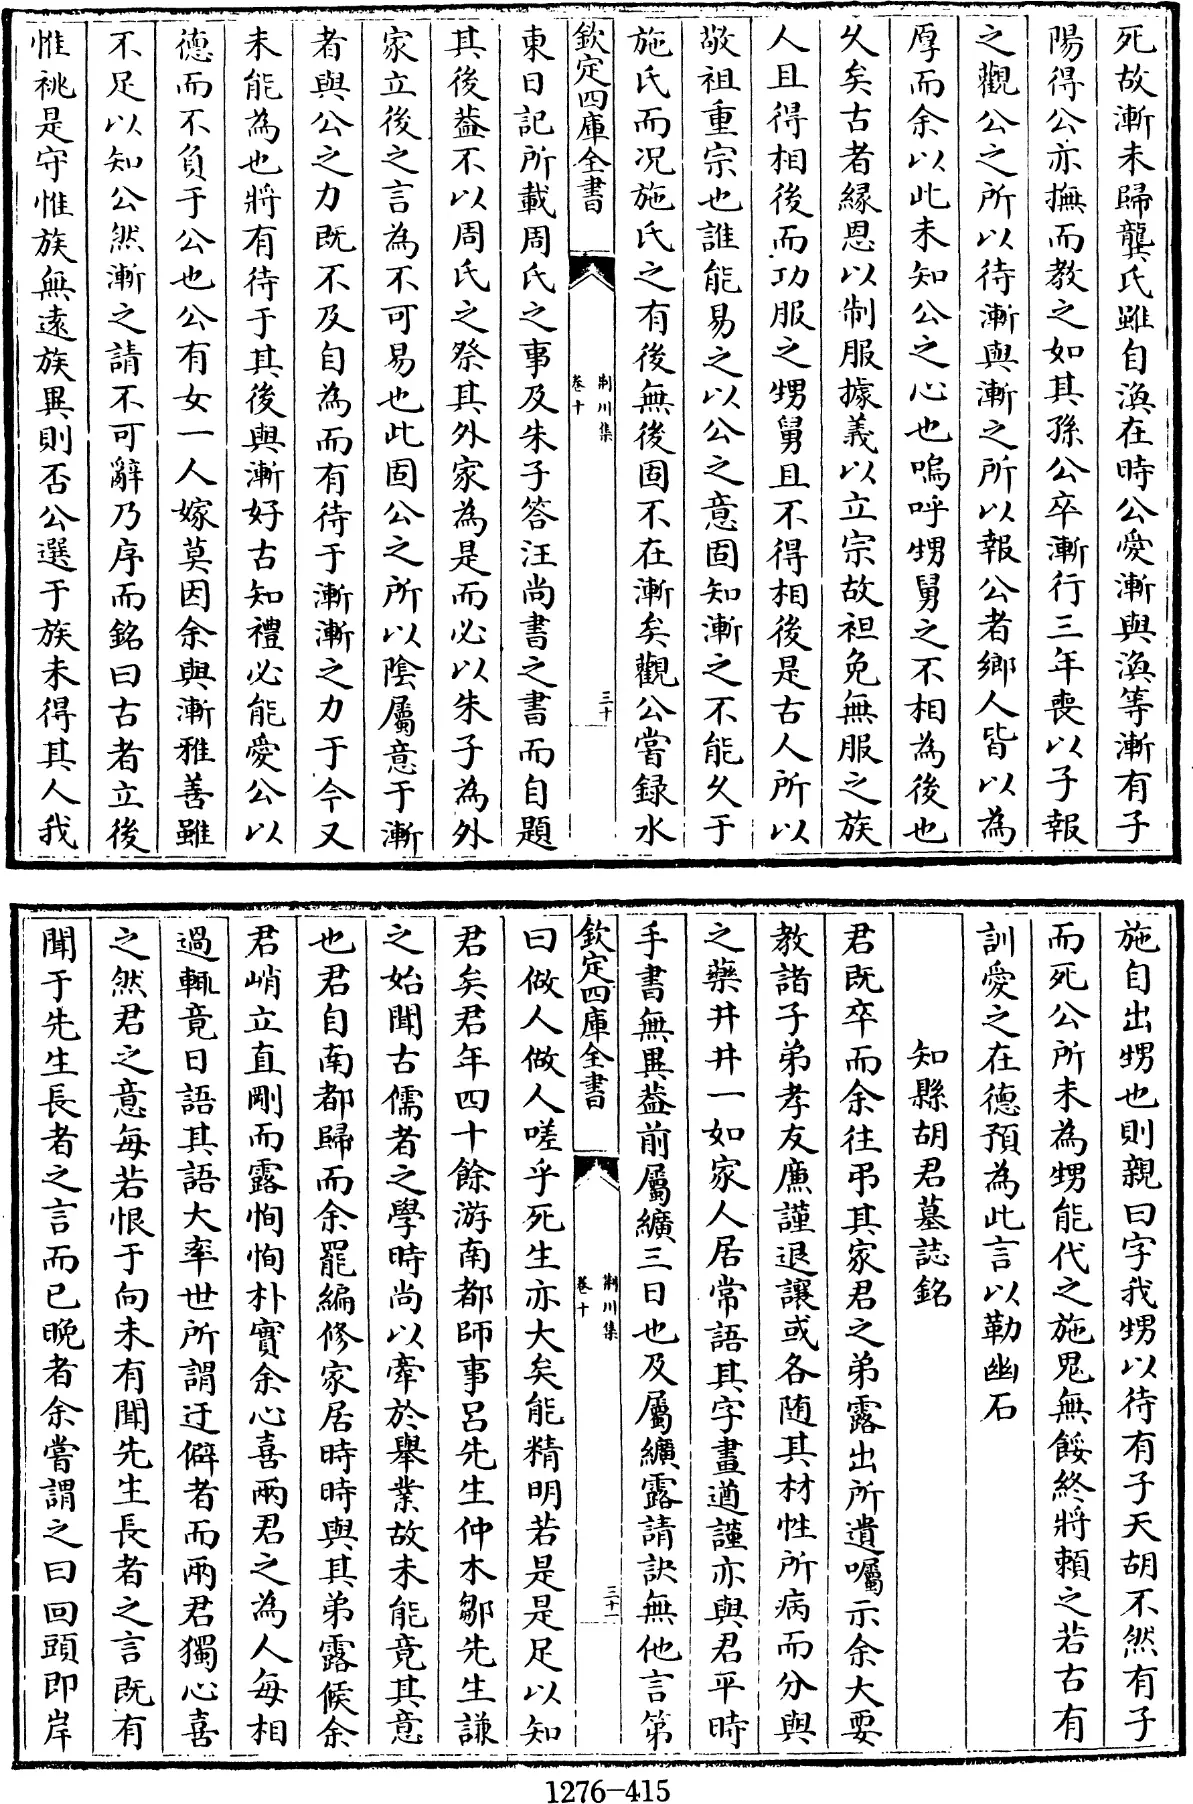 死故漸未歸龔氏雖自渙在時公愛漸與渙等漸有子
陽得公亦撫而教之如其孫公卒漸行三年喪以子報
之觀公之所以待漸與漸之所以報公者鄉人皆以為
厚而余以此未知公之心也嗚呼甥舅之不相為後也
乆矣古者緣恩以制服據義以立宗故袒免無服之族
人且得相後而功服之甥舅且不得相後是古人所以
敬祖重宗也誰能易之以公之意固知漸之不能乆于
施氏而况施氏之有後無後固不在漸矣觀公嘗録水
欽定四庫全書
荆川集
卷十
三十
東日記所載周氏之事及朱子答汪尚書之書而自題
其後葢不以周氏之祭其外家為是而必以朱子為外
家立後之言為不可易也此固公之所以陰屬意于漸
者與公之力既不及自為而有待于漸漸之力于今又
未能為也將有待于其後與漸好古知禮必能愛公以
德而不負于公也公有女一人嫁莫因余與漸雅善雖
不足以知公然漸之請不可辭乃序而銘曰古者立後
惟祧是守惟族無遠族異則否公選于族未得其人我
施自出甥也則親曰字我甥以待有子天胡不然有子
而死公所未為甥能代之施鬼無餒終將賴之若古有
訓愛之在德預為此言以勒幽石
知縣胡君墓誌銘
君既卒而余往弔其家君之弟露出所遺囑示余大要
教諸子弟孝友廉謹退讓或各随其材性所病而分與
之藥井井一如家人居常語其字畫遒謹亦與君平時
手書無異葢前屬纊三日也及屬纊露請訣無他言第
欽定四庫全書
荆川集
卷十
三十一
曰做人做人嗟乎死生亦大矣能精明若是是足以知
君矣君年四十餘游南都師事呂先生仲木鄒先生謙
之始聞古儒者之學時尚以牽於舉業故未能竟其意
也君自南都歸而余罷編修家居時時與其弟露候余
君峭立直剛而露恂恂朴實余心喜兩君之為人每相
過輒竟日語其語大率世所謂迂僻者而兩君獨心喜
之然君之意每若恨于向未有聞先生長者之言既有
聞于先生長者之言而已晚者余嘗謂之曰回頭即岸
1276-415